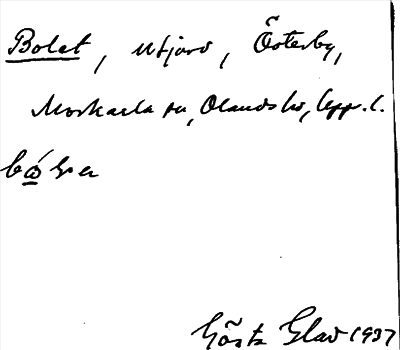 Bolet, utjord, Österby,
Morkarla sn, Olands hd, Uppl.
Gösta Glad 1937